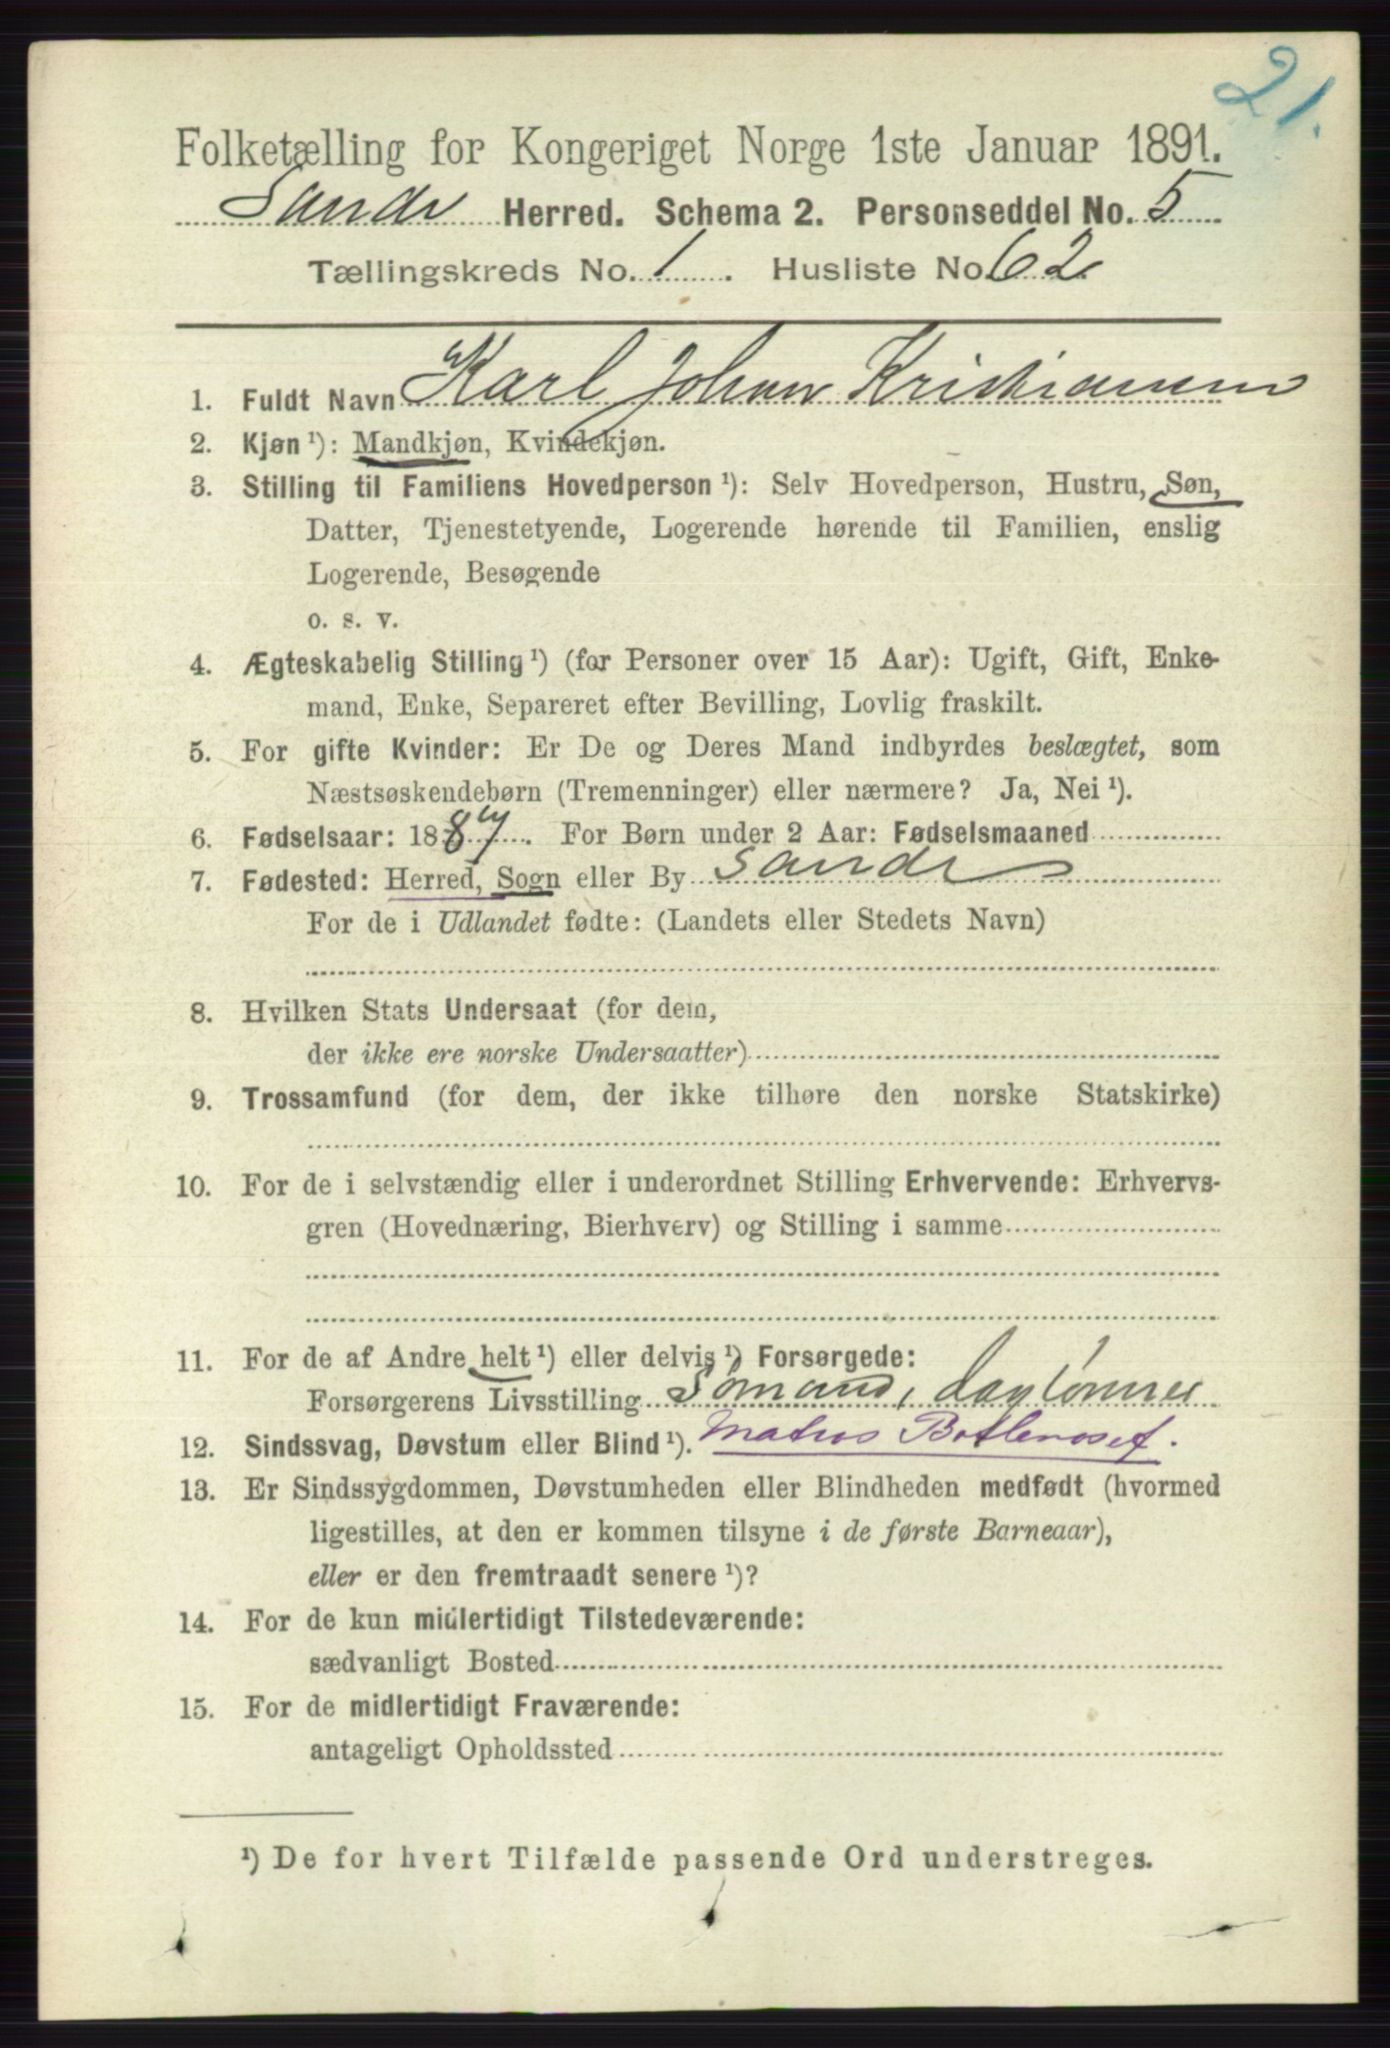 21.
Folketælling for Kongeriget Norge 1ste Januar 1891.
Sande Herred. Schema 2. Personseddel No. 5
Tællingskreds No. 1. Husliste No. 62
1. Fuldt Navn Karl Johan Kristiansen
2. Kjøn ¹): Mandkjøn, Kvindekjøn.
3. Stilling til Familiens Hovedperson ¹): Selv Hovedperson, Hustru, Søn,
Datter, Tjenestetyende, Logerende hørende til Familien, enslig
Logerende, Besøgende
o. s. v.
4. Ægteskabelig Stilling ¹) (for Personer over 15 Aar): Ugift, Gift, Enke-
mand, Enke, Separeret efter Bevilling, Lovlig fraskilt.
5. For gifte Kvinder: Er De og Deres Mand indbyrdes beslægtet, som
Næstsøskendebørn (Tremenninger) eller nærmere? Ja, Nei ¹).
6. Fødselsaar: 1887. For Børn under 2 Aar: Fødselsmaaned
7. Fødested: Herred, Sogn eller By Sande
For de i Udlandet fødte: (Landets eller Stedets Navn)
8. Hvilken Stats Undersaat (for dem,
der ikke ere norske Undersaatter)
9. Trossamfund (for dem, der ikke tilhøre den norske Statskirke)
10. For de i selvstændig eller i underordnet Stilling Erhvervende: Erhvervs-
gren (Hovednæring, Bierhverv) og Stilling i samme
11. For de af Andre helt ¹) eller delvis ¹) Forsørgede:
Forsørgerens Livsstilling Sømand, daglønner
12. Sindssvag, Døvstum eller Blind ¹). Matros
13. Er Sindssygdommen, Døvstumheden eller Blindheden medfødt (hvormed
ligestilles, at den er kommen tilsyne i de første Barneaar),
eller er den fremtraadt senere ¹)?
14. For de kun midlertidigt Tilstedeværende:
sædvanligt Bosted
15. For de midlertidigt Fraværende:
antageligt Opholdssted
¹) De for hvert Tilfælde passende Ord understreges.